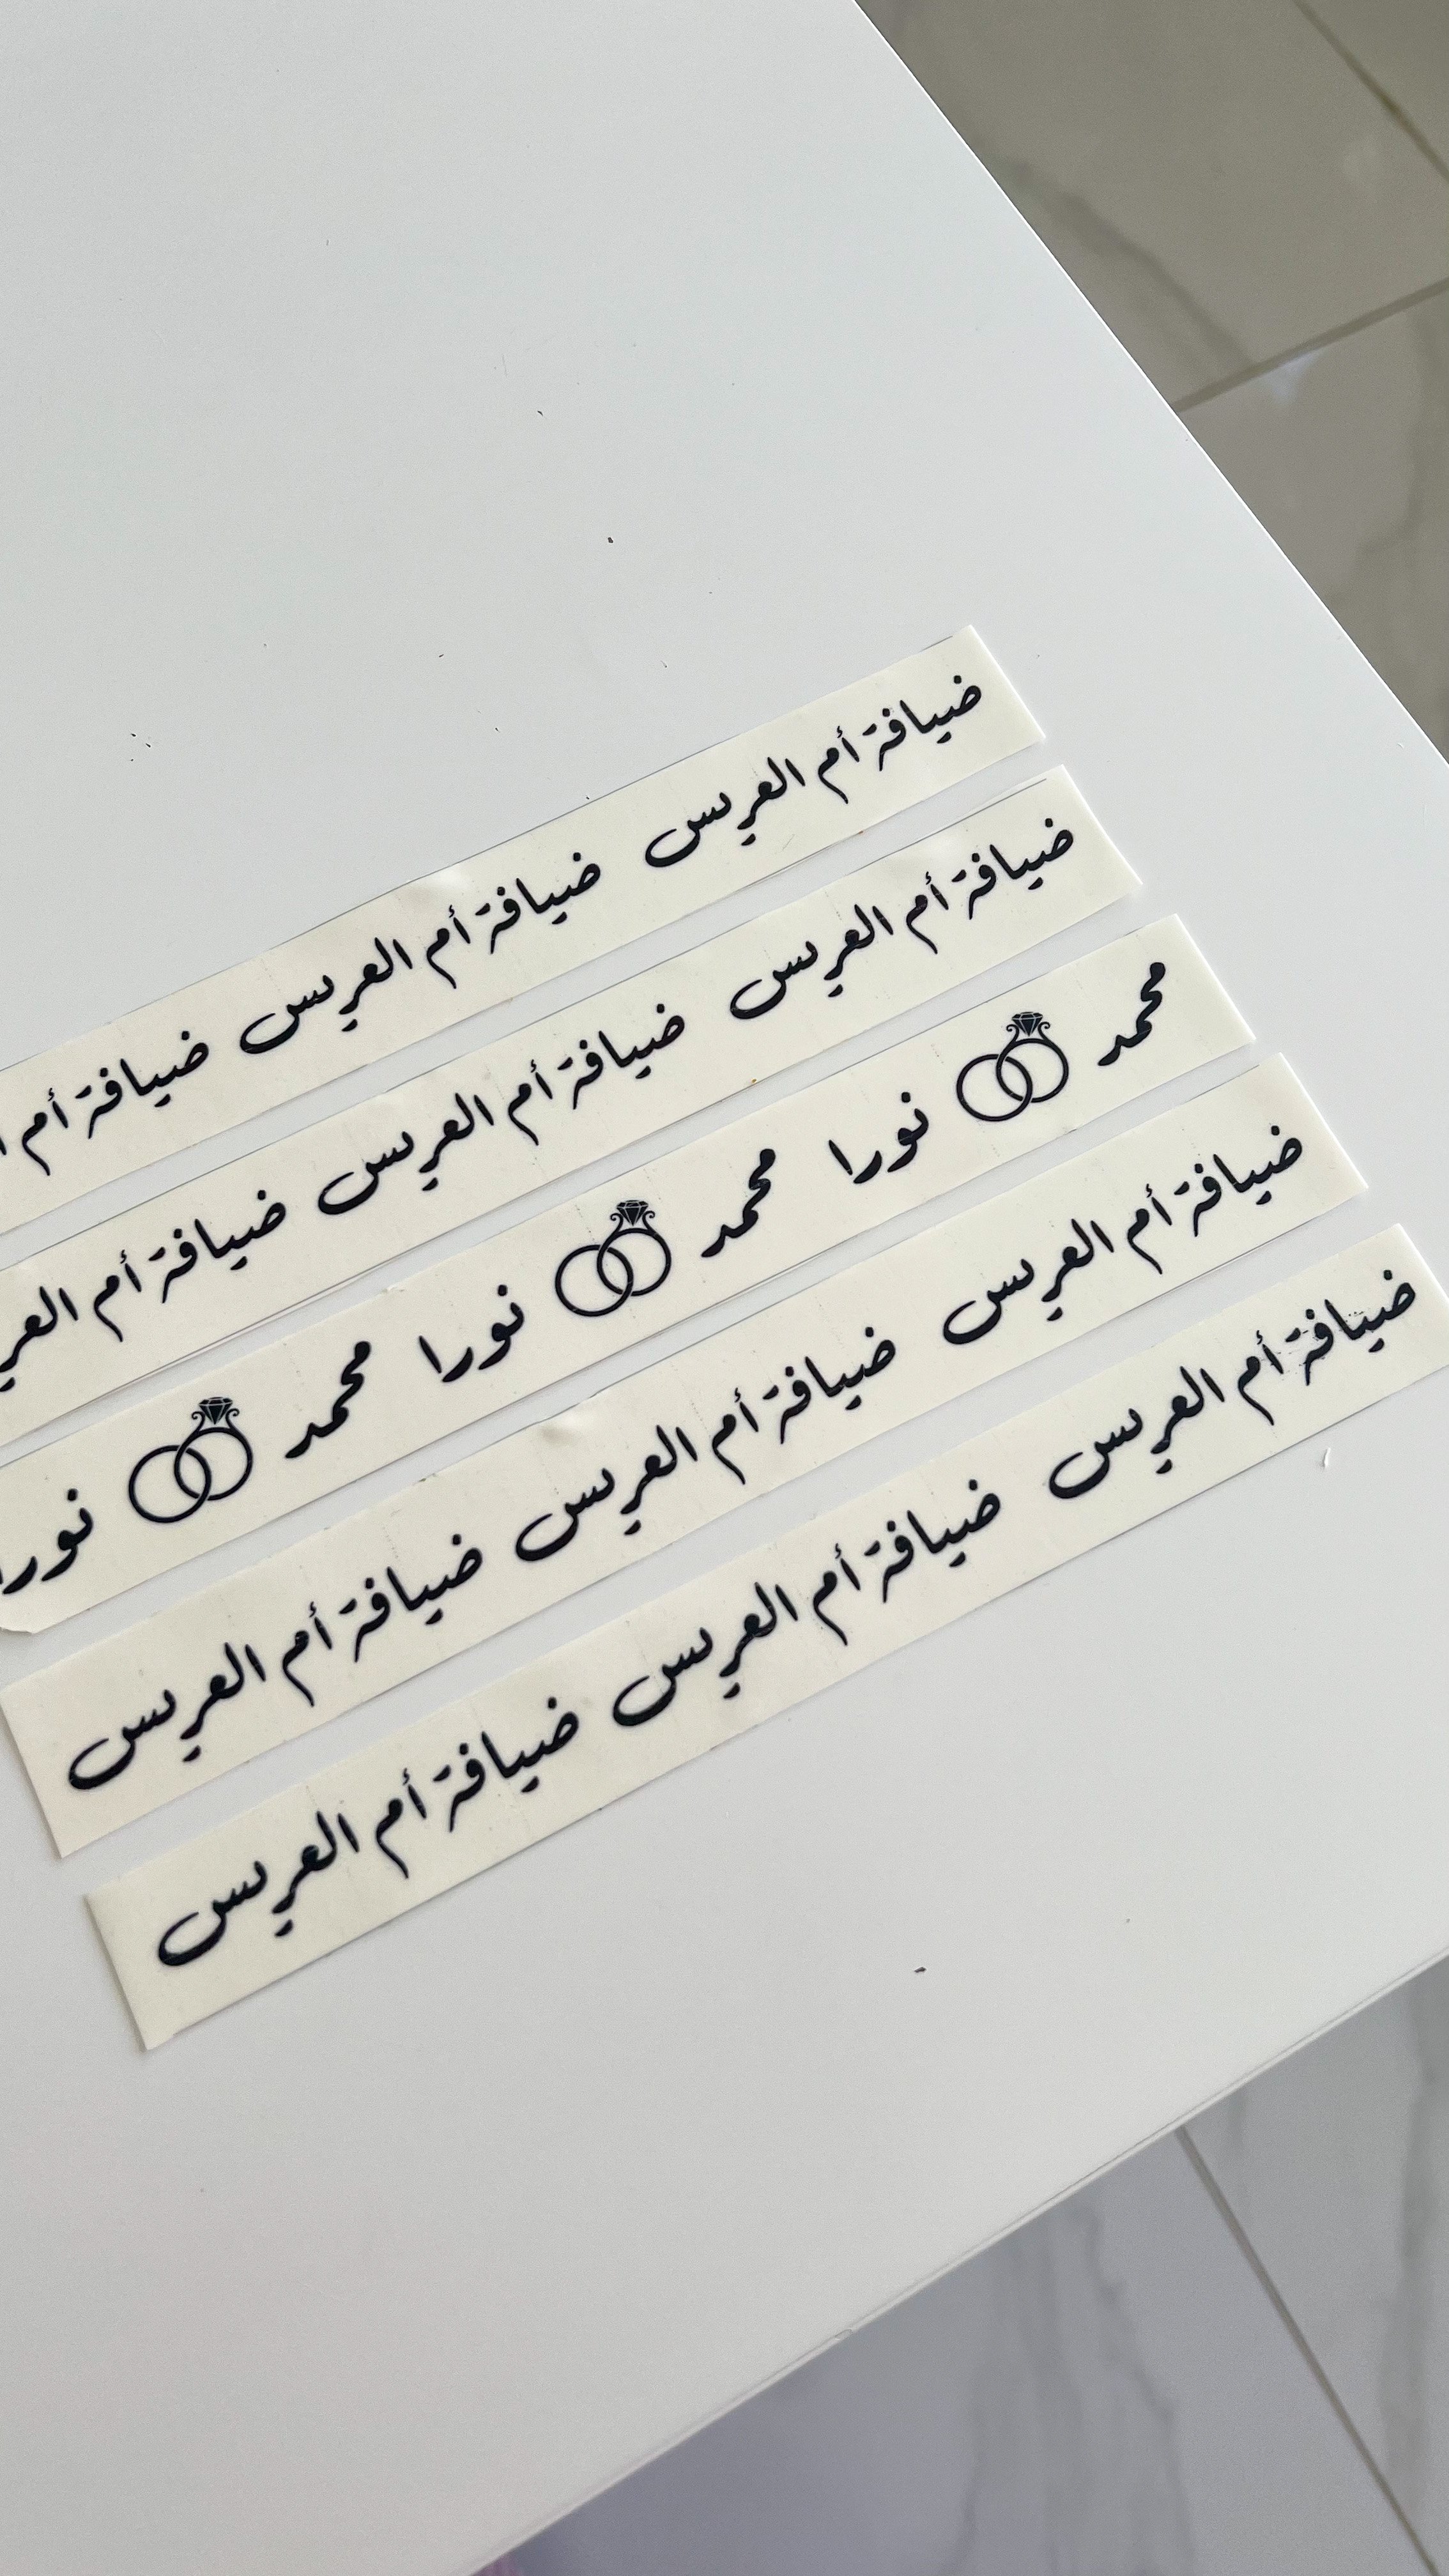 ضيافة أم العريس ضيافة أم العريس ضيافة أم
ضيافة أم العريس ضيافة أم العريس ضيافة أم
محمد نورا محمد نورا محمد نورا
ضيافة أم العريس ضيافة أم العريس ضيافة أم العريس
ضيافة أم العريس ضيافة أم العريس ضيافة أم العريس